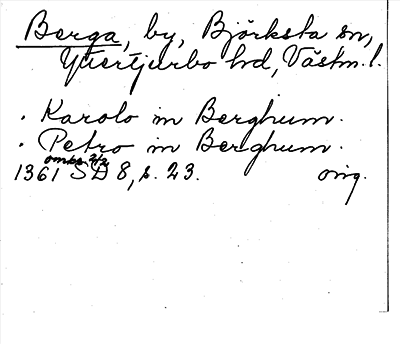 Berga, by, Björksta sn,
Yttertjurbo hd, Västm. l.
. Karolo in Berghum.
. Petro in Berghum.
omkr. 2/2
1361 SD 8, s. 23. orig.